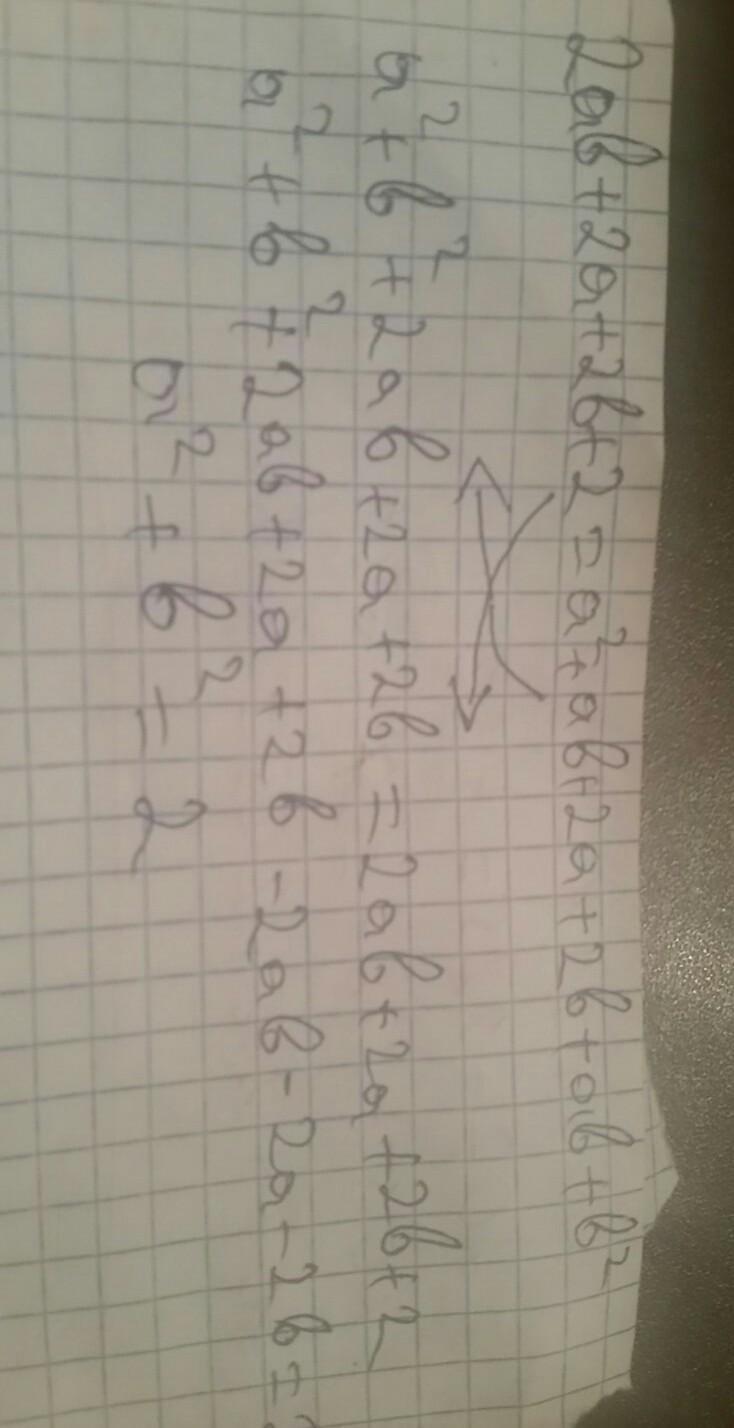 2ab+2a+2b+2=a²+ab+2a+2b+ab+b²
a²+b²+2ab+2a+2b=2ab+2a+2b+2
a²+b²+2ab+2a+2b-2ab-2a-2b=
a²+b²=2